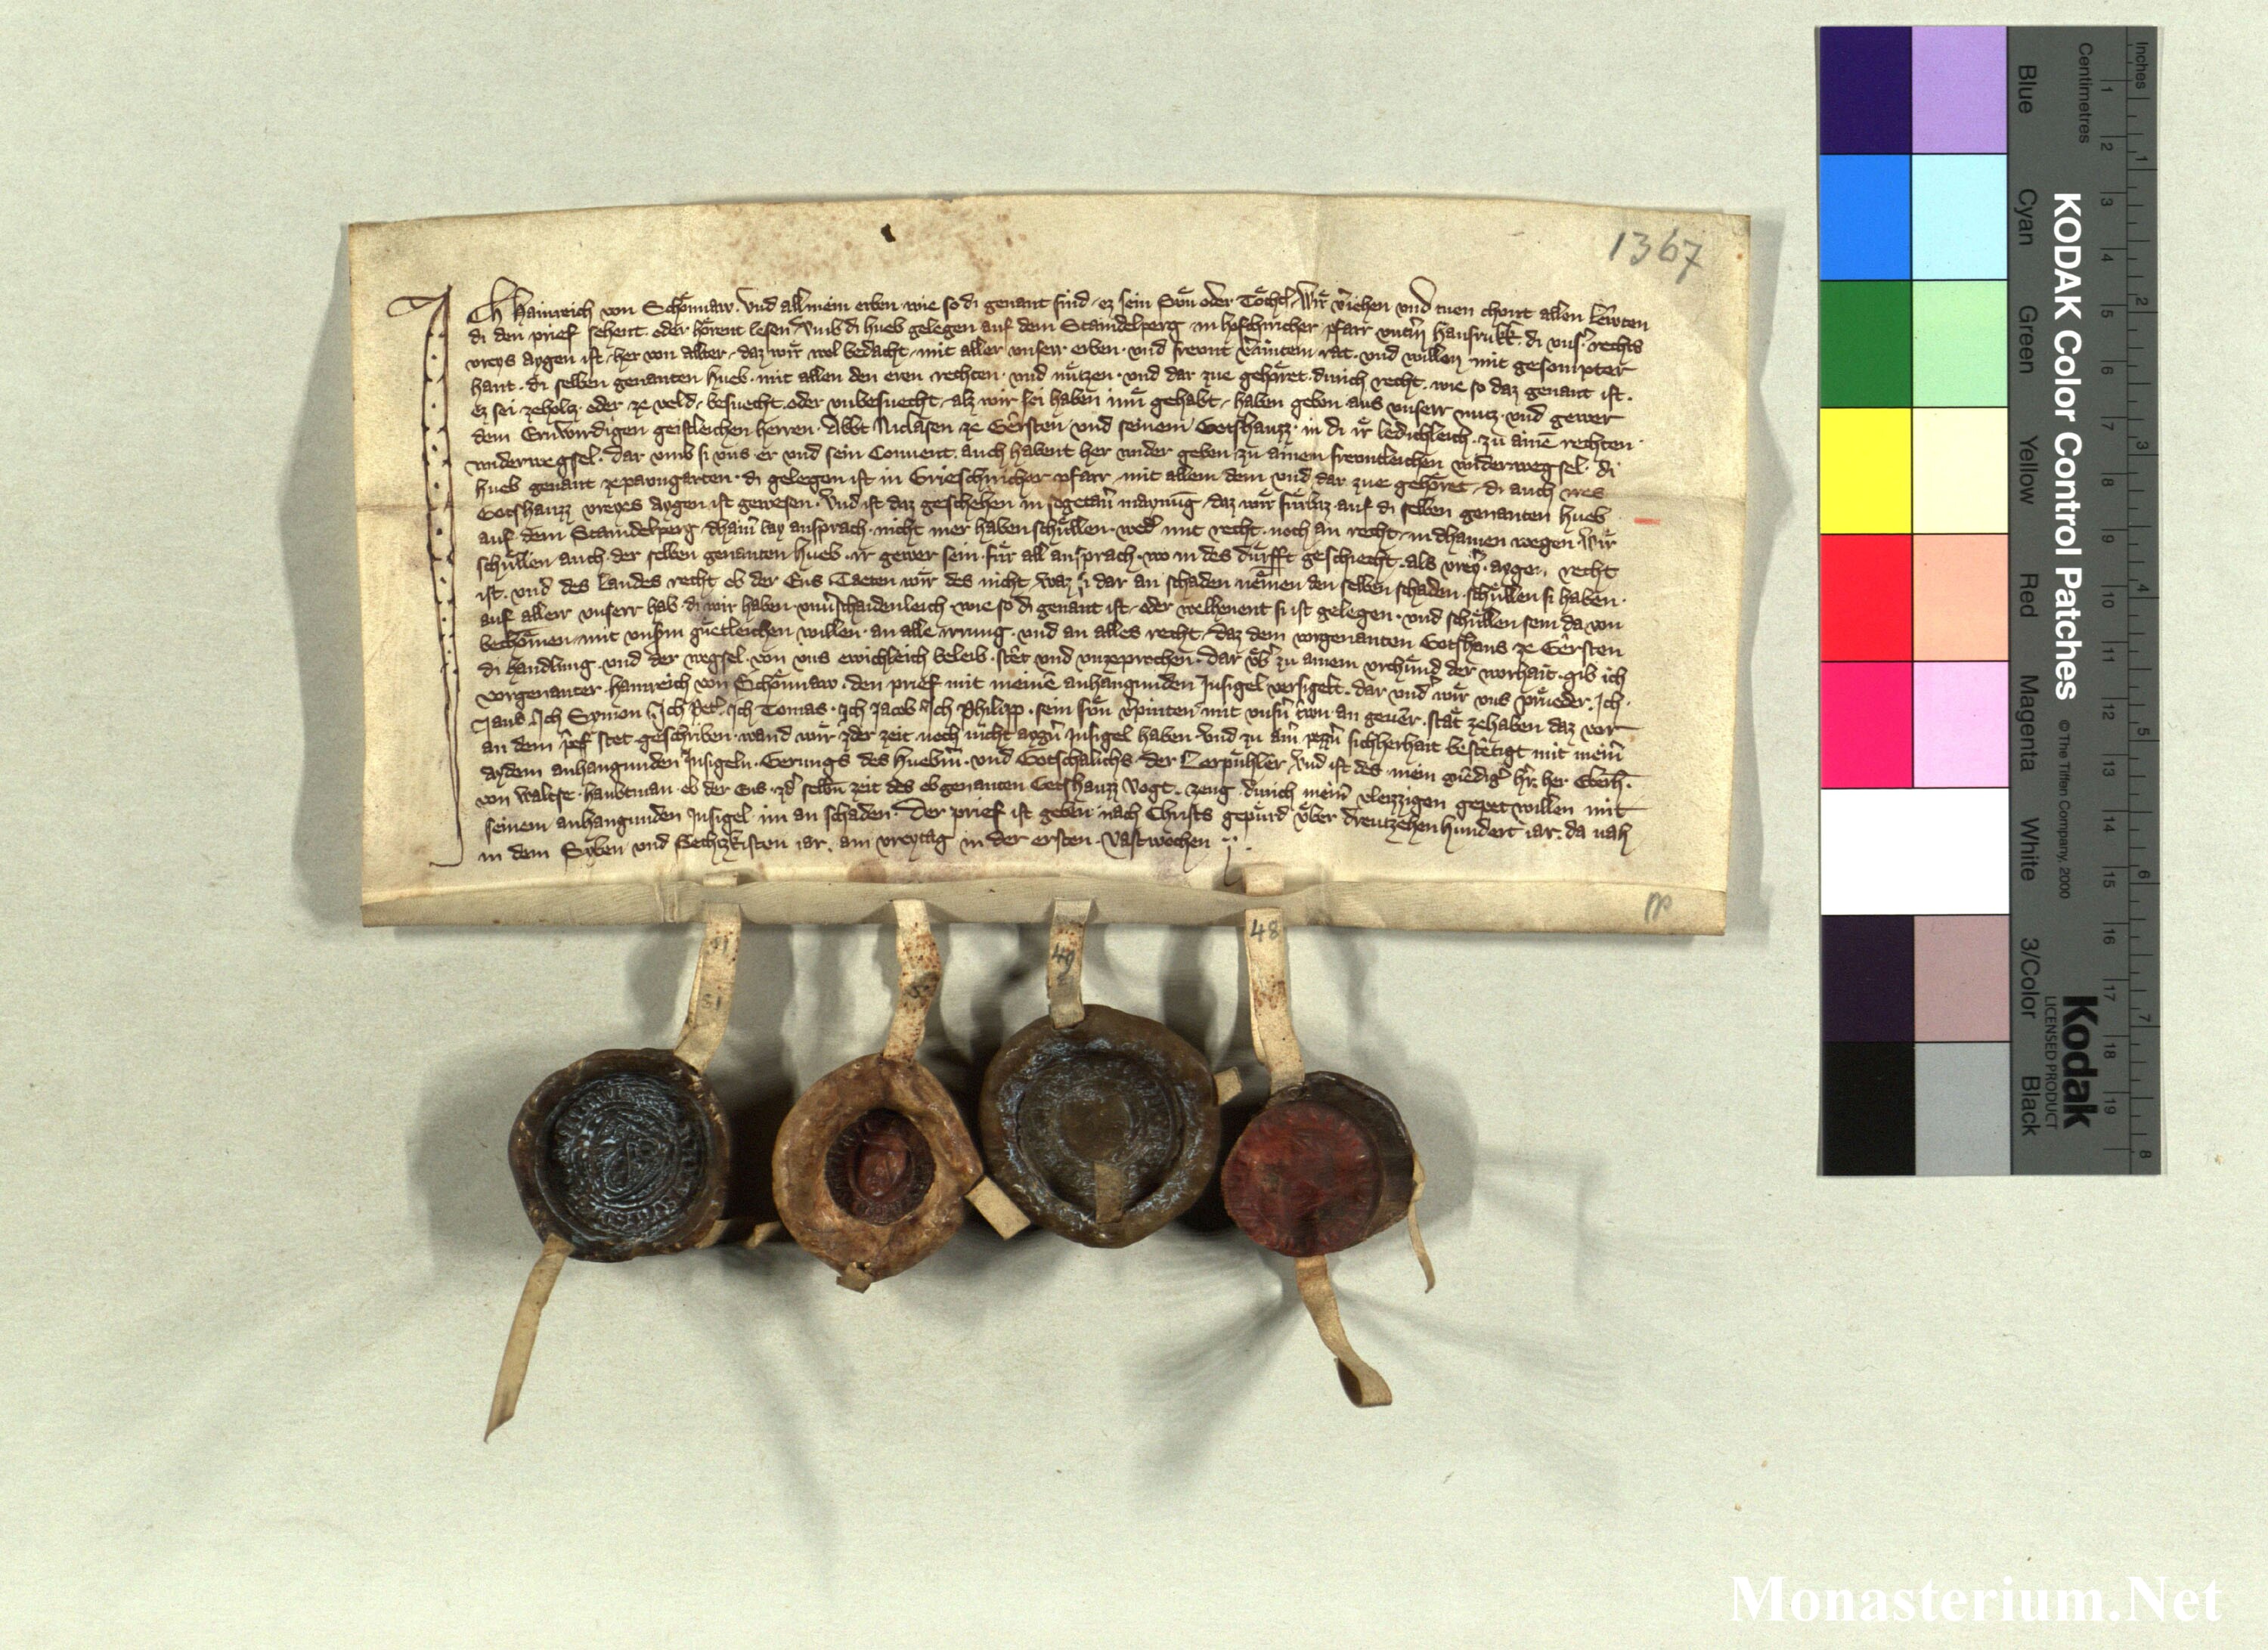 1367
Ich Hainreich von Schoͤnnaw. vnd all mein erben wie so di genant sind ez sein Svͤn oder Toͤchter Wir veriehen vnd tuen chunt allen Lewten
di den prief sehent oder hoͤrent lesen Vmb di hueb gelegen auf dem Staindelperg in hofchiricher pfarr vnterm hausrukk di vnser rechts
vreys aygen ist her von alter daz wir wol bedacht mit aller vnserr erben vnd frevnt rat vnd willen mit gesampter
hant di selben genanten hueb mit allen den eren rechten vnd nuͤtzen vnd dar zue gehoͤret durich recht wie so daz genant ist
ez sei ze holcz oder ze veld besuecht oder vnbesuecht alz wir sei haben inn gehabt haben geben aus vnserr nutz vnd gewer
dem Erwirdigen geistleichen herren Abbt Niclasen ze Gersten vnd seinem Gotshauzz in di ir ledichleich zu ainem rechten
widerwegsel dar vmb si vns er vnd sein Conuent auch habent her wider geben zu ainem frevntleichen widerwegsel di
hueb genant ze pavngarten di gelegen ist in Grieschiricher pfarr mit allem dem vnd dar zue gehoͤret di auch ires
Gotshauzz vreyes aygen ist gewesen Vnd ist daz geschehen in sogetaner maynung daz wir fuͤrbaz auf di selben genanten hueb
auf dem Staindelperg dhainerlay ansprach nicht mer haben schuͤllen weder mit recht noch an recht in dhainen wegen Wir
schuͤllen auch der selben genanten hueb ir gewer sein fuͤr all ansprach wo in des duͤrfft geschiecht als vreys aygen recht
ist vnd des Landes recht ob der Ens Taeten wir des nicht waz si dar an schaden nemen den selben schaden schuͤllen si haben
auf aller vnserr hab di wir haben vnuerschaidenleich wie so di genant ist oder welhenent si ist gelegen vnd schuͤllen sein da von
bechomen mit vnserm guetleichen willen an alle irrung vnd an alles recht daz dem vorgenanten Gotshaus ze Gersten
di handlung vnd der wegsel von vns ewichleich beleib stet vnd vnzeprochen Dar vͤber zu ainem vrchuͤnd der worhait gib ich
vorgenanter Hainreich von Schoͤnnaw den prief mit meinem anhangunden Insigel versigelt dar vnder wir vns prueder Ich
Jans Ich Symon Ich Peter Ich Tomas Ich Jacob Ich Philipp sein svͤn verpinten mit vnsern trwn an geuer staͤt ze haben daz vor
an dem prief stet geschriben wand wir zder zeit noch nicht aygner Insigel haben Vnd zu ainer pezzern sicherhait bestetigt mit meiner
aydem anhangunden Insigeln Gerungs des Huebmer vnd Gotschalichs der Lerpuͤhler Vnd ist des mein genediger herr her Eberh.
von Waltse haubtman ob der Ens zder selben zeit des obgenanten Gotshauzz Vogt zeug durich meiner vleizzigen gepet willen mit
seinem anhangunden Insigel im an schaden Der prief ist geben nach Christs gepuͤrd vͤber dreutzehen hundert iar da nah
in dem Syben vnd Sechtzkisten iar am vreytag in der ersten Vastwochen
51
51
49
48
KODAK Color Control Patches
© The Tiffen Company, 2000
Kodak
LICENSED PRODUCT
Blue
Cyan
Green
Yellow
Red
Magenta
White
3/Color
Black
Inches
Centimetres
1
2
3
4
5
6
7
8
9
10
11
12
13
14
15
16
17
18
19
1
2
3
4
5
6
7
8
Monasterium.Net